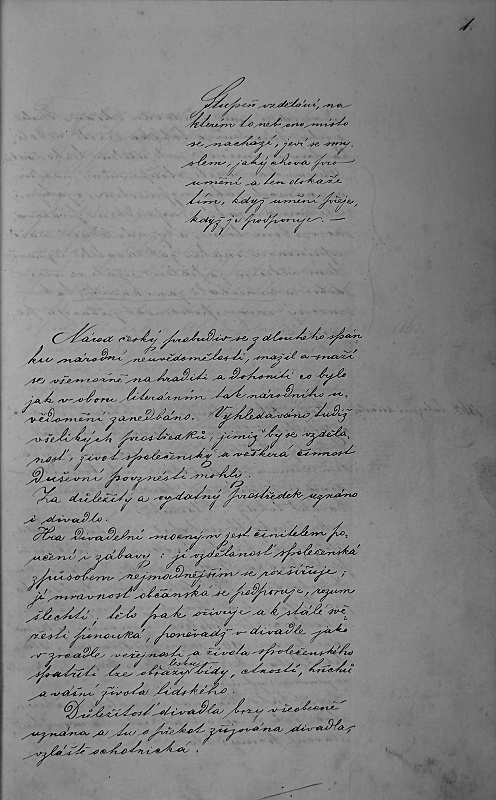 1.
Stupeň vzdělání, na
kterém to neb ono místo
se nachází, jeví se smy-
slem, jaký chová pro
umění a ten dokáže
tím, když umění přeje,
když je podporuje. —
Národ český probudiv se z dlouhého spán-
ku národní neuvědomělosti, snažil a snaží
se všemožně nahraditi a dohoniti co bylo
jak v oboru literárním tak národního u-
vědomění zanedbáno. Vyhledáváno tudíž
všelikých prostředků, jimiž by se vzděla-
nost, život společenský a veškerá činnost
duševní povznésti mohly.
Za důležitý a vydatný prostředek uznáno
i divadlo.
Hra divadelní mocným jest činitelem po-
učení i zábavy: jí vzdělanost společenská
způsobem nejsnadnějším se rozšiřuje;
jí mravnost občanská se podporuje, rozum
šlechtí, tělo pak oživuje a k stálé svě-
žesti ponouká, poněvadž v divadle jako
v zrcadle veřejnosti a života společenského
spatřiti lze obrazy lesku bídy, ctností, hříchů
a vášní života lidského.
Důležitost divadla brzy všeobecně
uznána a tu o překot zřizována divadla,
vzláště ochotnická.